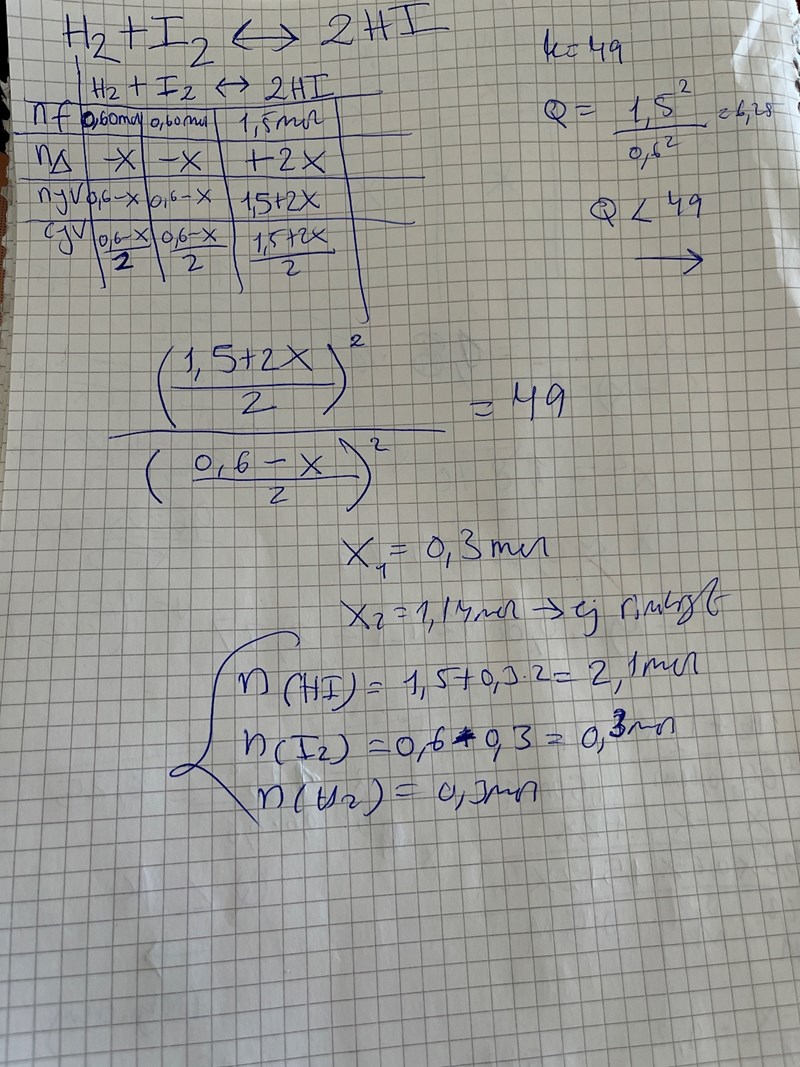 H₂ + I₂ ↔ 2HI
k=49
H₂ + I₂ ↔ 2HI
nf 0,60mol 0,60mol 1,5mol
Q = 1,5² / 0,6² = 6,25
nΔ -x -x +2x
njv 0,6-x 0,6-x 1,5+2x
Q < 49
cjv (0,6-x)/2 (0,6-x)/2 (1,5+2x)/2
→
((1,5+2x)/2)² / ((0,6-x)/2)² = 49
x₁ = 0,3 mol
x₂ = 1,14mol → ej rimligt
n(HI) = 1,5+0,3·2 = 2,1mol
n(I₂) = 0,6-0,3 = 0,3mol
n(H₂) = 0,3mol